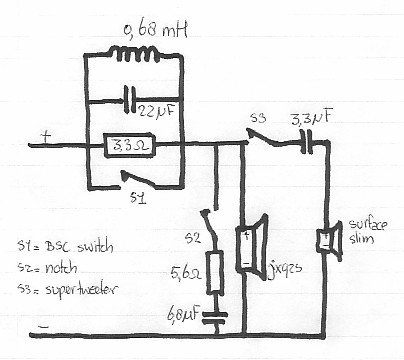 0,68 mH
22µF
+
3,3Ω
S1
S3
3,3µF
S2
+
-
jxq2s
+
-
surface
slim
5,6Ω
6,8µF
S1 = BSC switch
S2 = notch
S3 = supertweeter
-